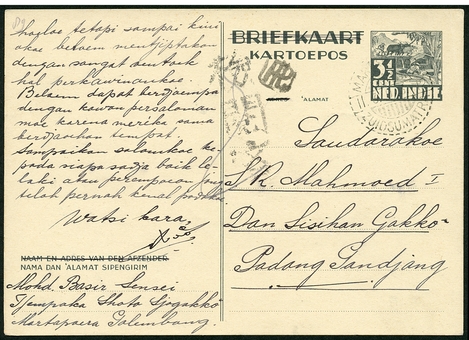 thoeloe tetapi sampai kini
akoe beloem mentjiptakan
dengan sangat oentoek
hal perkawinankoe.
Beloem dapat berdjoempa
dengan kawan persalaman
moe karena mereka sama
berdjaoehan tempat.
Sampaikan salamkoe ke
pada siapa sadja baik le
laki atau perempoean jang
telah pernah kenal padakoe
Watsi kara
NAAM EN ADRES VAN DEN AFZENDER
NAMA DAN ALAMAT SIPENGIRIM
Mohd. Basir Sensei
Tjempaka Shoto Sjogakko
Martapoera Palembang.
BRIEFKAART
KARTOEPOS
ALAMAT
3½
CENT
NED. INDIE
Saudarakoe
St. Mahmoed I
Dan Sisihan Gakko
Padang Pandjang